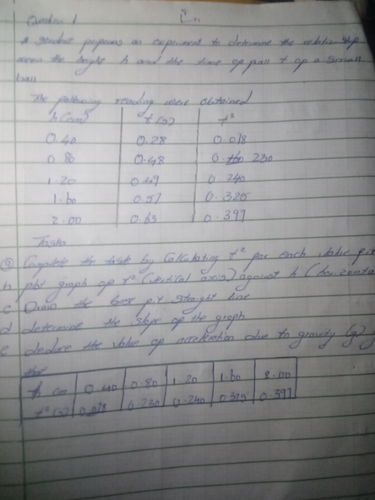 Question 1
A student prepares an experiment to determine the relationship
between the height h and the time of fall t of a small
ball
The following reading were obtained
h (m) t (s) t²
0.40 0.28 0.078
0.80 0.48 0.230
1.20 0.49 0.240
1.60 0.57 0.325
2.00 0.63 0.397
Tasks
a Complete the table by calculating t² for each value of t
b plot graph of t² (vertical axis) against h (horizontal
c Draw the best fit straight line
d determine the slope of the graph
e deduce the value of acceleration due to gravity (g)
h (m) 0.40 0.80 1.20 1.60 2.00
t² (s) 0.078 0.230 0.240 0.325 0.397